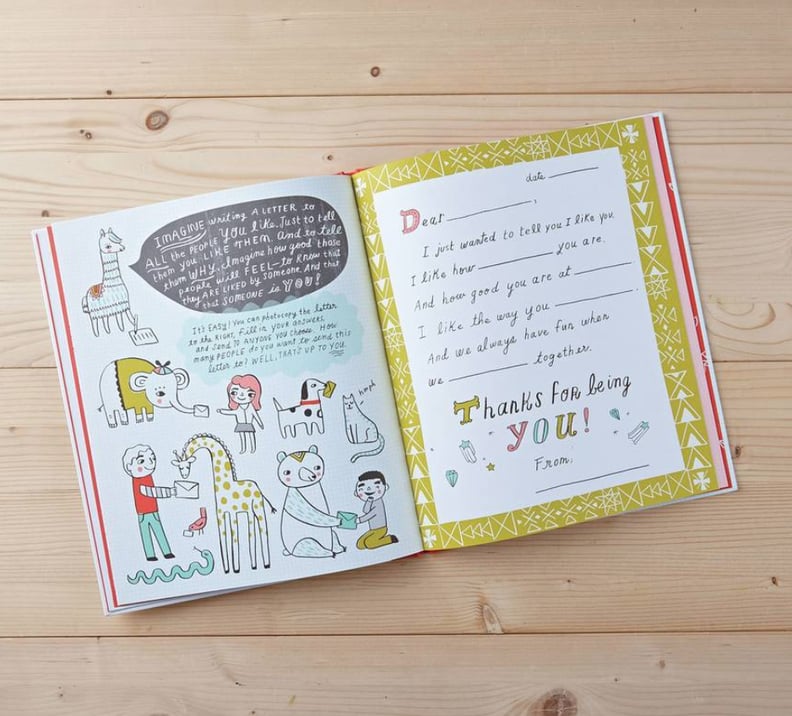 IMAGINE writing A LETTER to
ALL the PEOPLE YOU Like. Just to tell
them YOU LIKE THEM. And to tell
them WHY. Imagine how good those
people will FEEL—to know that
they ARE LIKED by someone. And that
that SOMEONE is YOU!
It's EASY! You can photocopy the letter
to the RIGHT, fill in your answers,
and send TO ANYONE you choose. How
many PEOPLE do you want to send this
letter to? WELL, THAT'S UP TO YOU.
hmph
date
Dear ,
I just wanted to tell you I like you.
I like how you are.
And how good you are at .
I like the way you .
And we always have fun when
we together.
Thanks for being
YOU!
From,